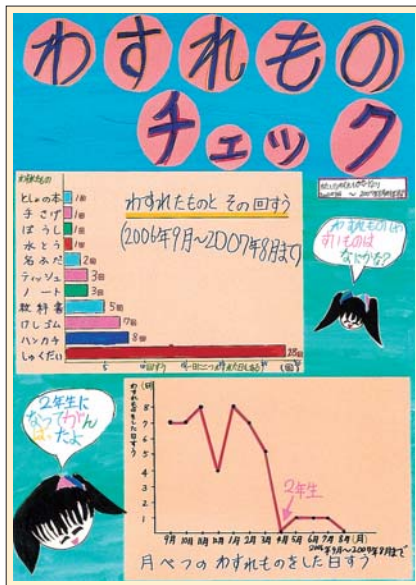 わすれもの
チェック
わすれたもの
としょの本 1回
手さげ 1回
ぼうし 1回
水とう 1回
名ふだ 2回
ティッシュ 3回
ノート 3回
教科書 5回
けしゴム 7回
ハンカチ 8回
しゅくだい 28回
5
わすれたものと その回すう
(2006年9月〜2007年8月まで)
わすれものしや
すいものは
なにかな?
2年生に
なってがん
ばったよ
わすれものをした日すう
(日)
8
7
6
5
4
3
2
1
2年生
9月 10月 11月 12月 1月 2月 3月 4月 5月 6月 7月 8月 (月)
2006年9月〜2007年8月まで
月べつの わすれものをした日すう